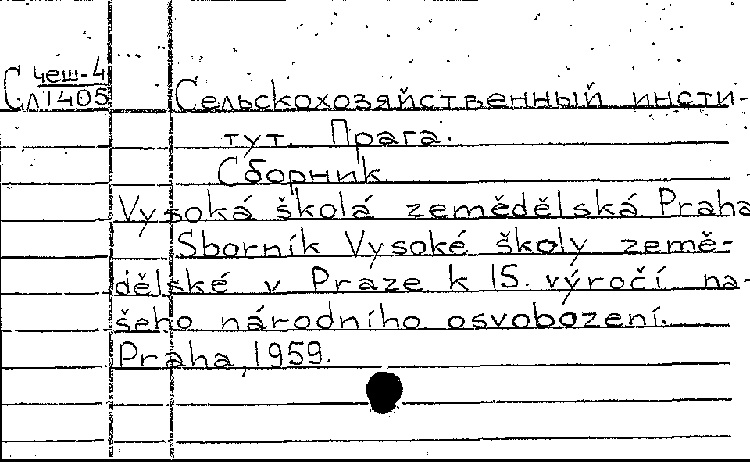 Сл чеш-4
1405
Сельскохозяйственный инсти-
тут. Прага.
Сборник
Vysoká škola zemědělská Praha
Sborník Vysoké školy země-
dělské v Praze k 15. výročí na-
šeho národního osvobození.
Praha, 1959.